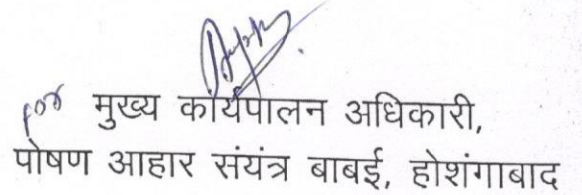 for मुख्य कार्यपालन अधिकारी,
पोषण आहार संयंत्र बाबई, होशंगाबाद